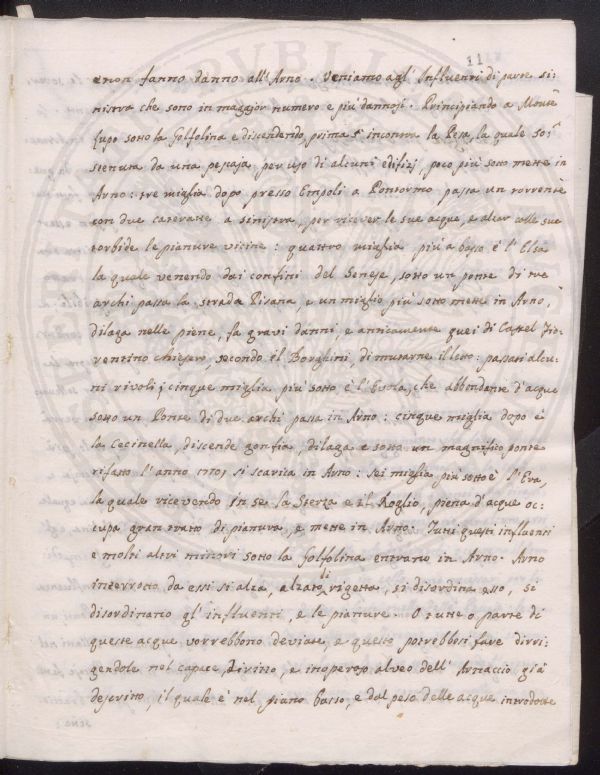 e non fanno danno all'Arno. Veniamo agl'Influenti di parte si:
nistra che sono in maggior numero e più dannosi. Principiando a Monte
lupo sotto la Golfolina e discendendo, prima s'incontra la Pesa, la quale so:
stenuta da una pescaja, per uso di alcuni edifizj, poco più sotto mette in
Arno: tre miglia dopo presso Empoli a Pontormo passa un torrente
con due cateratte a sinistra, per ricever le sue acque, e alzar colle sue
torbide le pianure vicine: quattro miglia più a basso è l'Elsa
la quale venendo dai confini del Senese, sotto un ponte di tre
archi passa la strada Pisana, e un miglio più sotto mette in Arno,
dilaga nelle piene, fa gravi danni, e anticamente quei di Castel Fio:
rentino chiesero, secondo il Borghini, di mutarne il letto: passati alcu:
ni rivoli, cinque miglia più sotto è l'Evola, che abbondante d'acque
sotto un Ponte di due archi passa in Arno: cinque miglia dopo è
la Cecinella, discende gonfia, dilaga e sotto un magnifico ponte
rifatto l'anno 1770, si scarica in Arno: sei miglia più sotto è l'Era,
la quale ricevendo in se la Sterza e il Roglio, piena d'acque oc:
cupa gran tratto di pianura, e mette in Arno. Tutti questi influenti
e molti altri minori sotto la Golfolina entrano in Arno. Arno
interrotto da essi si alza, e alzato li rigetta, si disordina esso, si
disordinano gl'influenti, e le pianure. O tutte o parte di
queste acque vorrebbono deviate, e questo potrebbesi fare diri:
gendole nel capace, diritto, e inoperoso alveo dell'Arnaccio già
descritto, il quale è nel piano basso, e dal peso delle acque introdotte